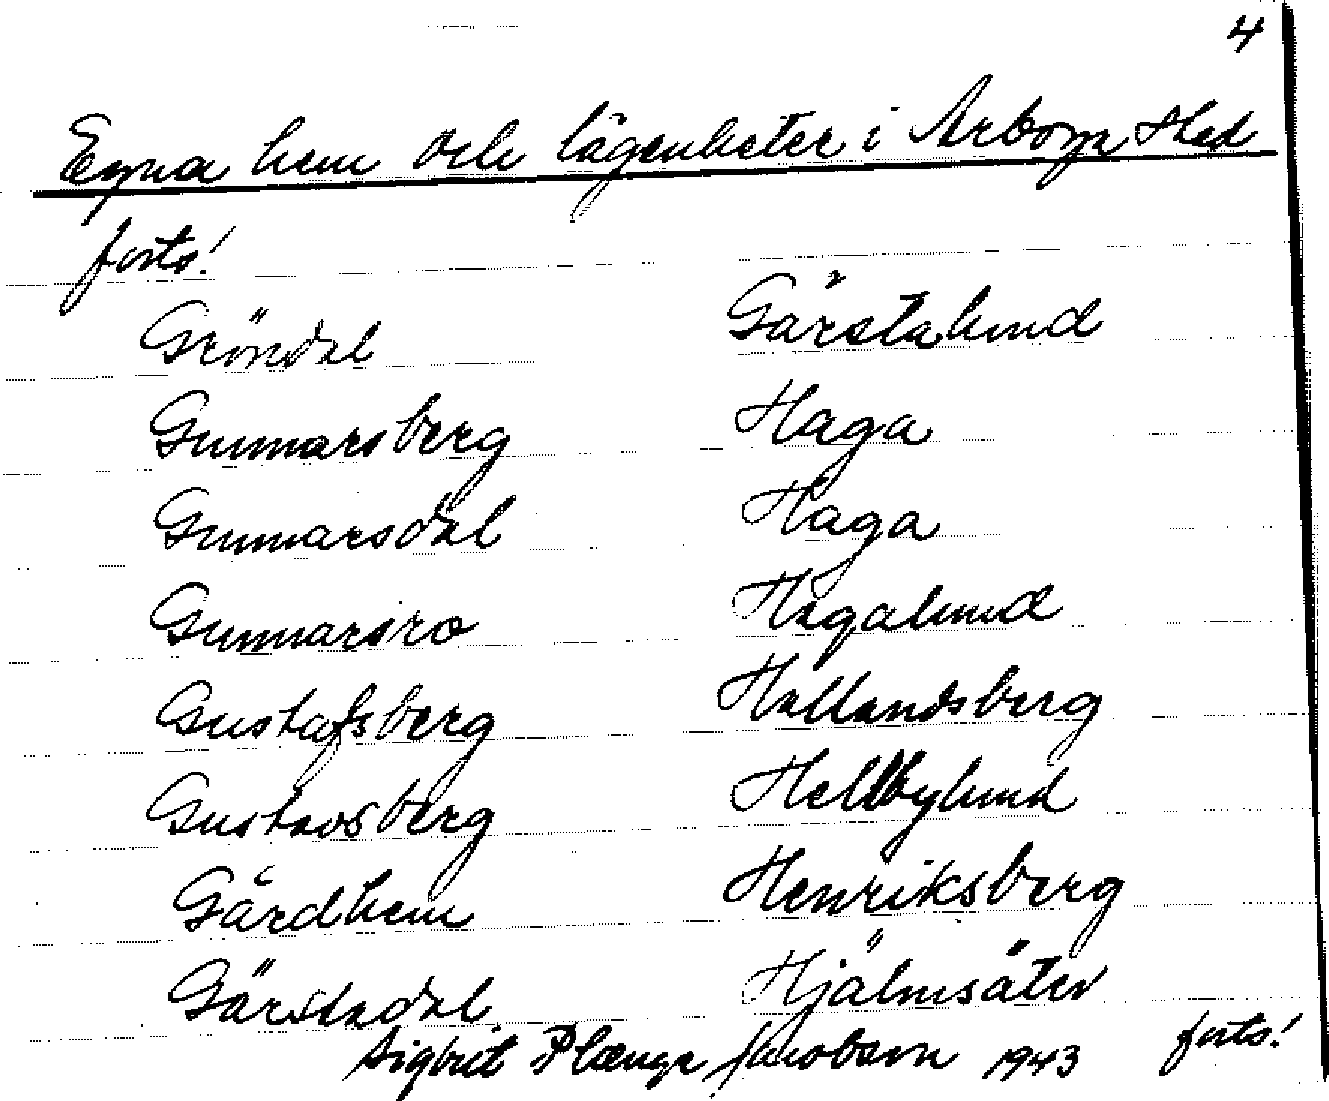 4
Egna hem och lägenheter i Arboga Hed
forts!
Gröndal
Gunnarsberg
Gunnarsdal
Gunnarsro
Gustafsberg
Gustavsberg
Gårdhem
Gärstadal
Gärstalund
Haga
Haga
Hagalund
Hallandsberg
Hellbylund
Henriksberg
Hjälmsäter
Sigbrit Plænge Jacobson 1943
forts!